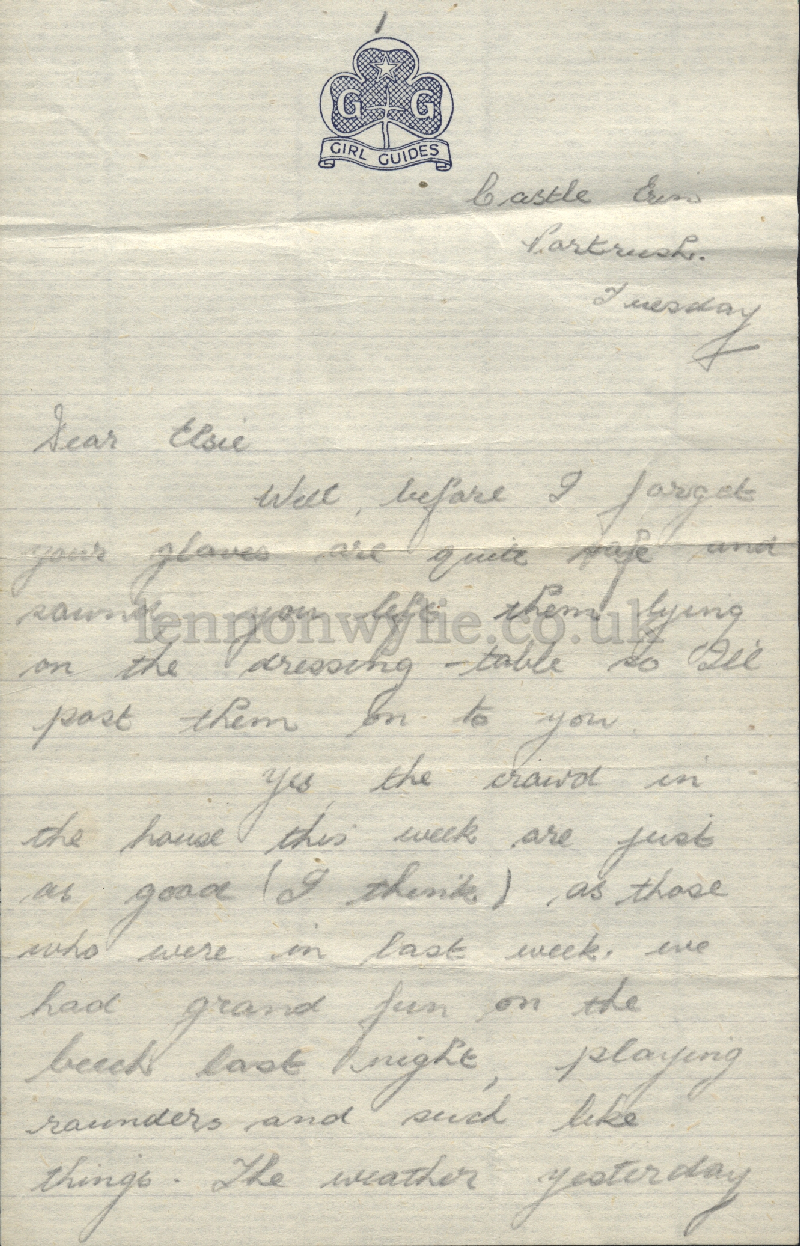 1
G G
GIRL GUIDES
Castle Erin
Portrush.
Tuesday
Dear Elsie
Well, before I forget
your gloves are quite safe and
sound, you left them lying
lennonwylie.co.uk
on the dressing-table so I'll
post them on to you.
Yes, the crowd in
the house this week are just
as good (I think) as those
who were in last week. we
had grand fun on the
beech last night, playing
rounders and such like
things. The weather yesterday